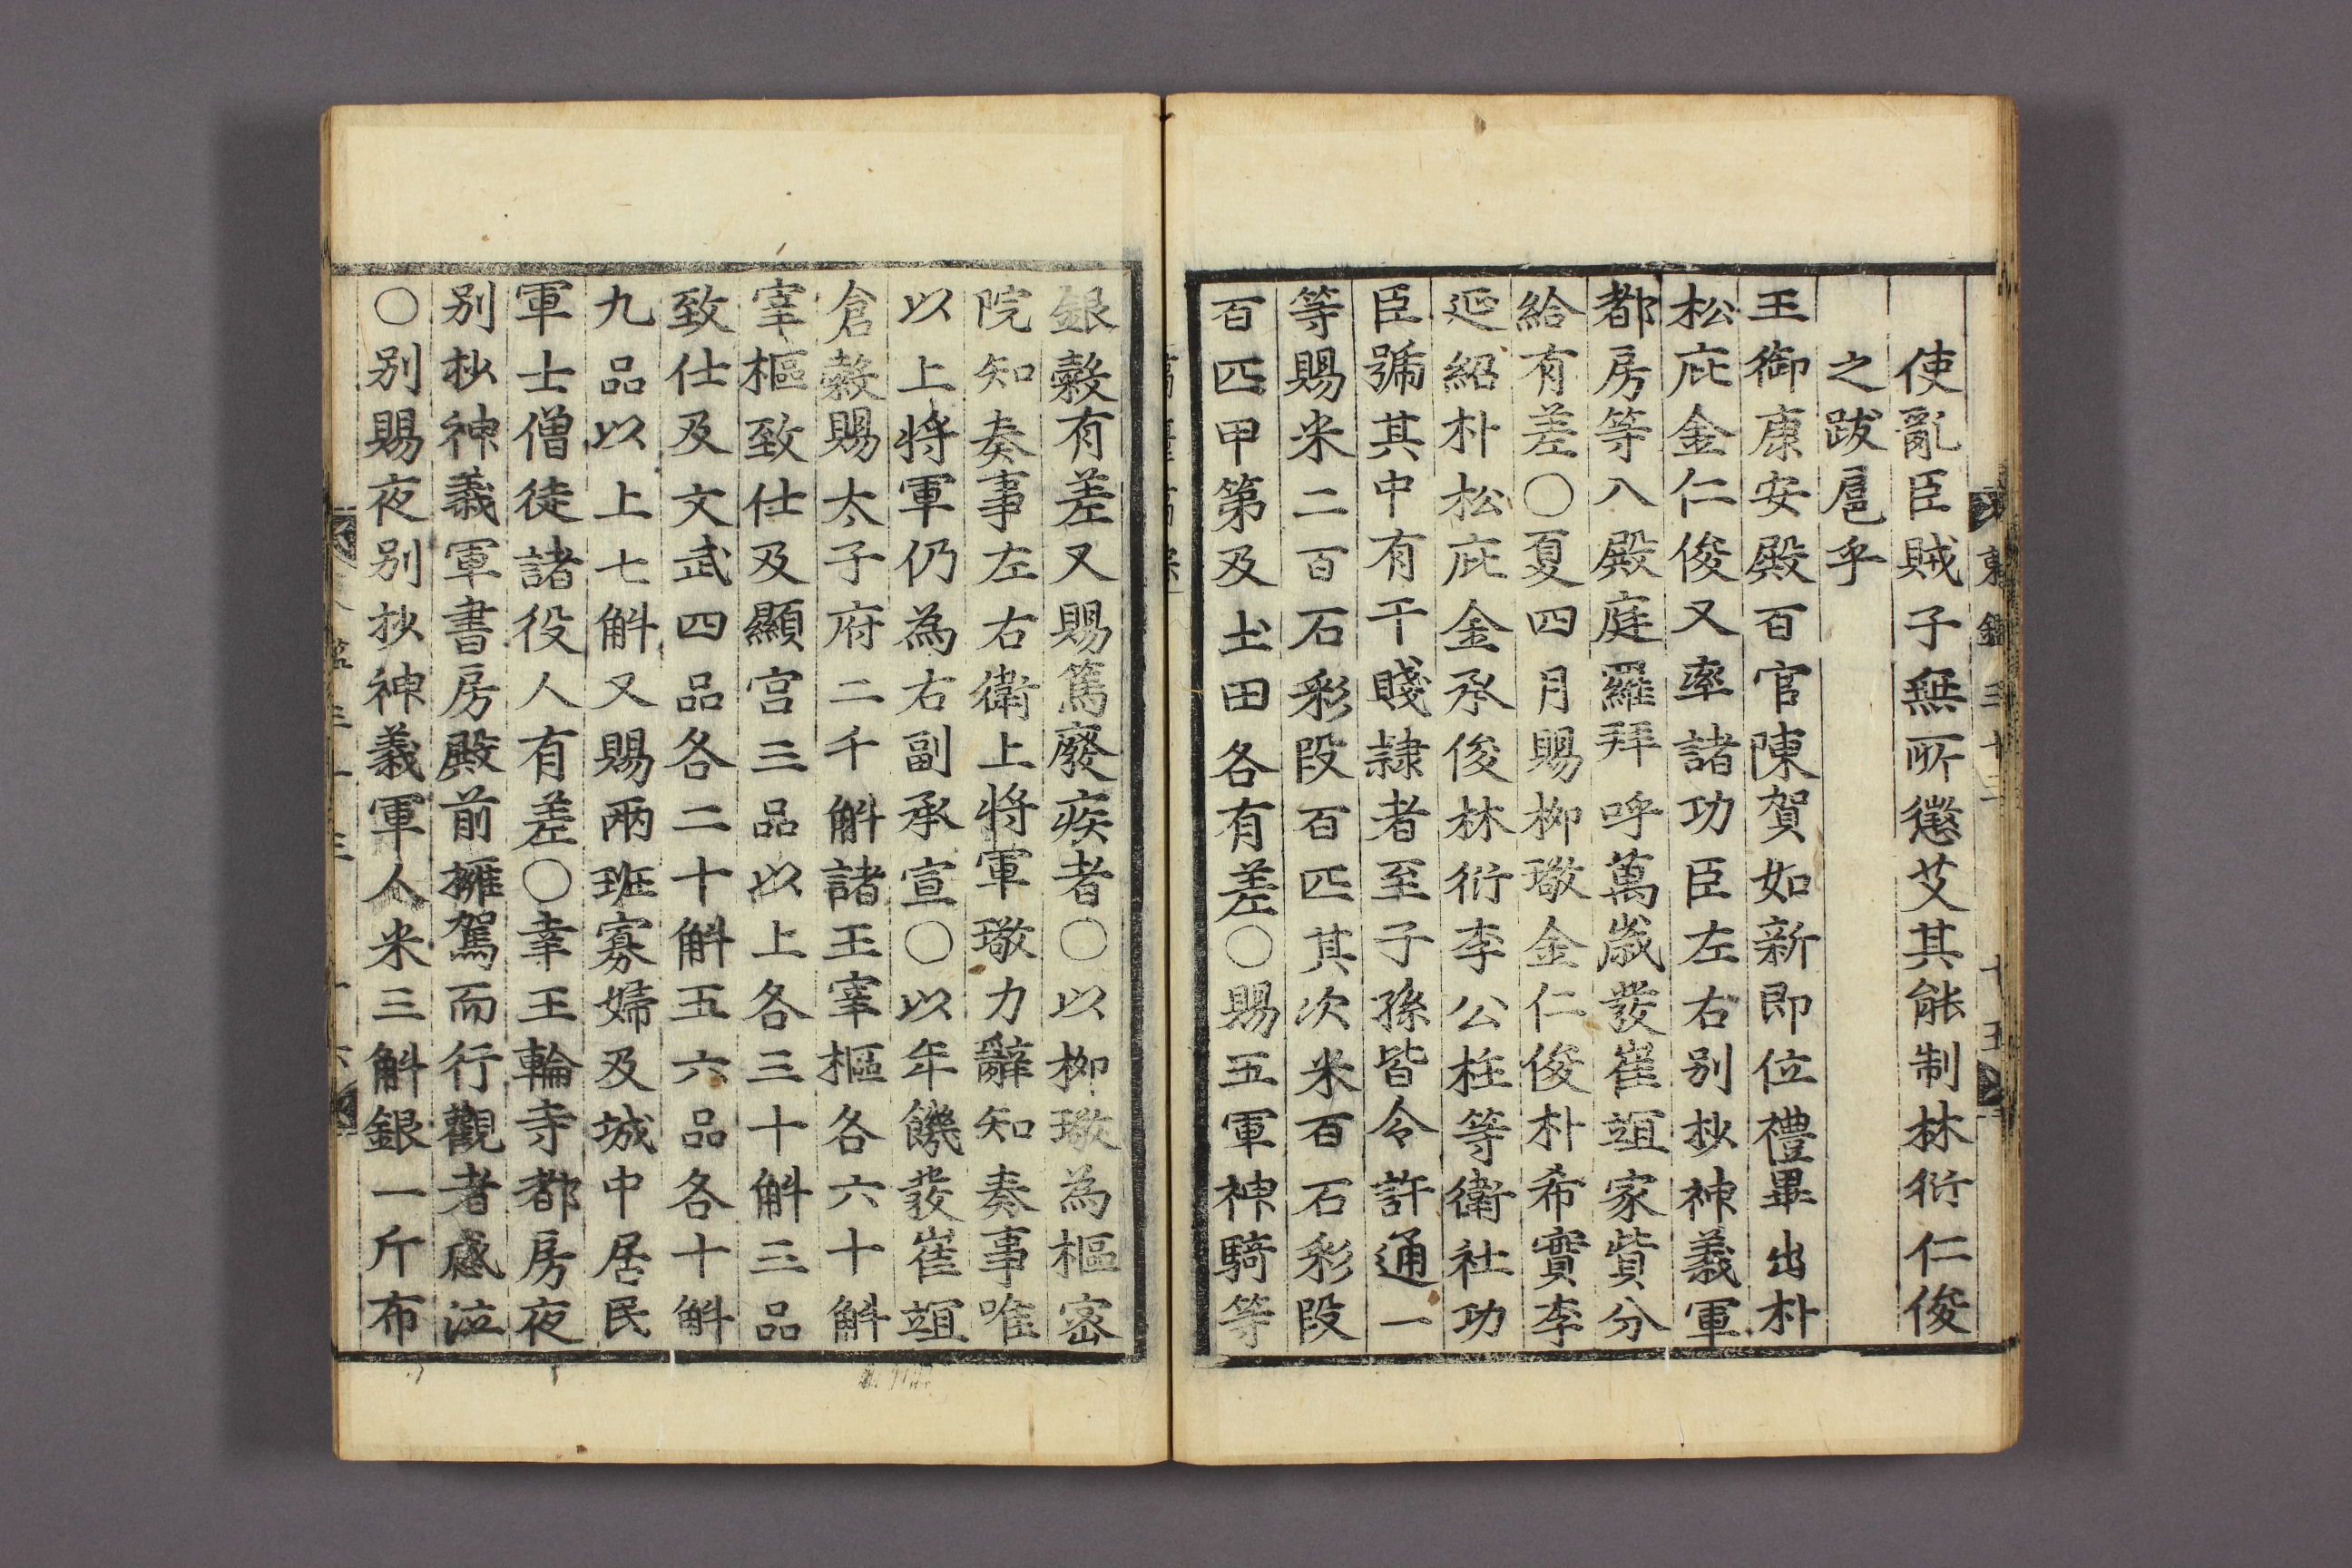 使亂臣賊子無所懲艾其能制林衍仁俊
之跋扈乎
王御康安殿百官陳賀如新即位禮畢出朴
松庇金仁俊又率諸功臣左右别抄神義軍
都房等八殿庭羅拜呼萬歲發崔竩家貲分
給有差○夏四月賜柳璥金仁俊朴希實李
延紹朴松庇金承俊林衍李公柱等衛社功
臣號其中有干賤隷者至子孫皆令許通一
等賜米二百石彩段百匹其次米百石彩段
百匹甲第及土田各有差○賜五軍神騎等
銀糓有差又賜篤廢疾者○以柳璥為樞宻
院知奏事左右衛上將軍璥力辭知奏事唯
以上將軍仍為右副承宣○以年饑發崔竩
倉糓賜太子府二千斛諸王宰樞各六十斛
宰樞致仕及顯官三品以上各三十斛三品
致仕及文武四品各二十斛五六品各十斛
九品以上七斛又賜兩班寡婦及城中居民
軍士僧徒諸役人有差○幸王輪寺都房夜
别抄神義軍書房殿前擁駕而行觀者感泣
○别賜夜别抄神義軍人米三斛銀一斤布